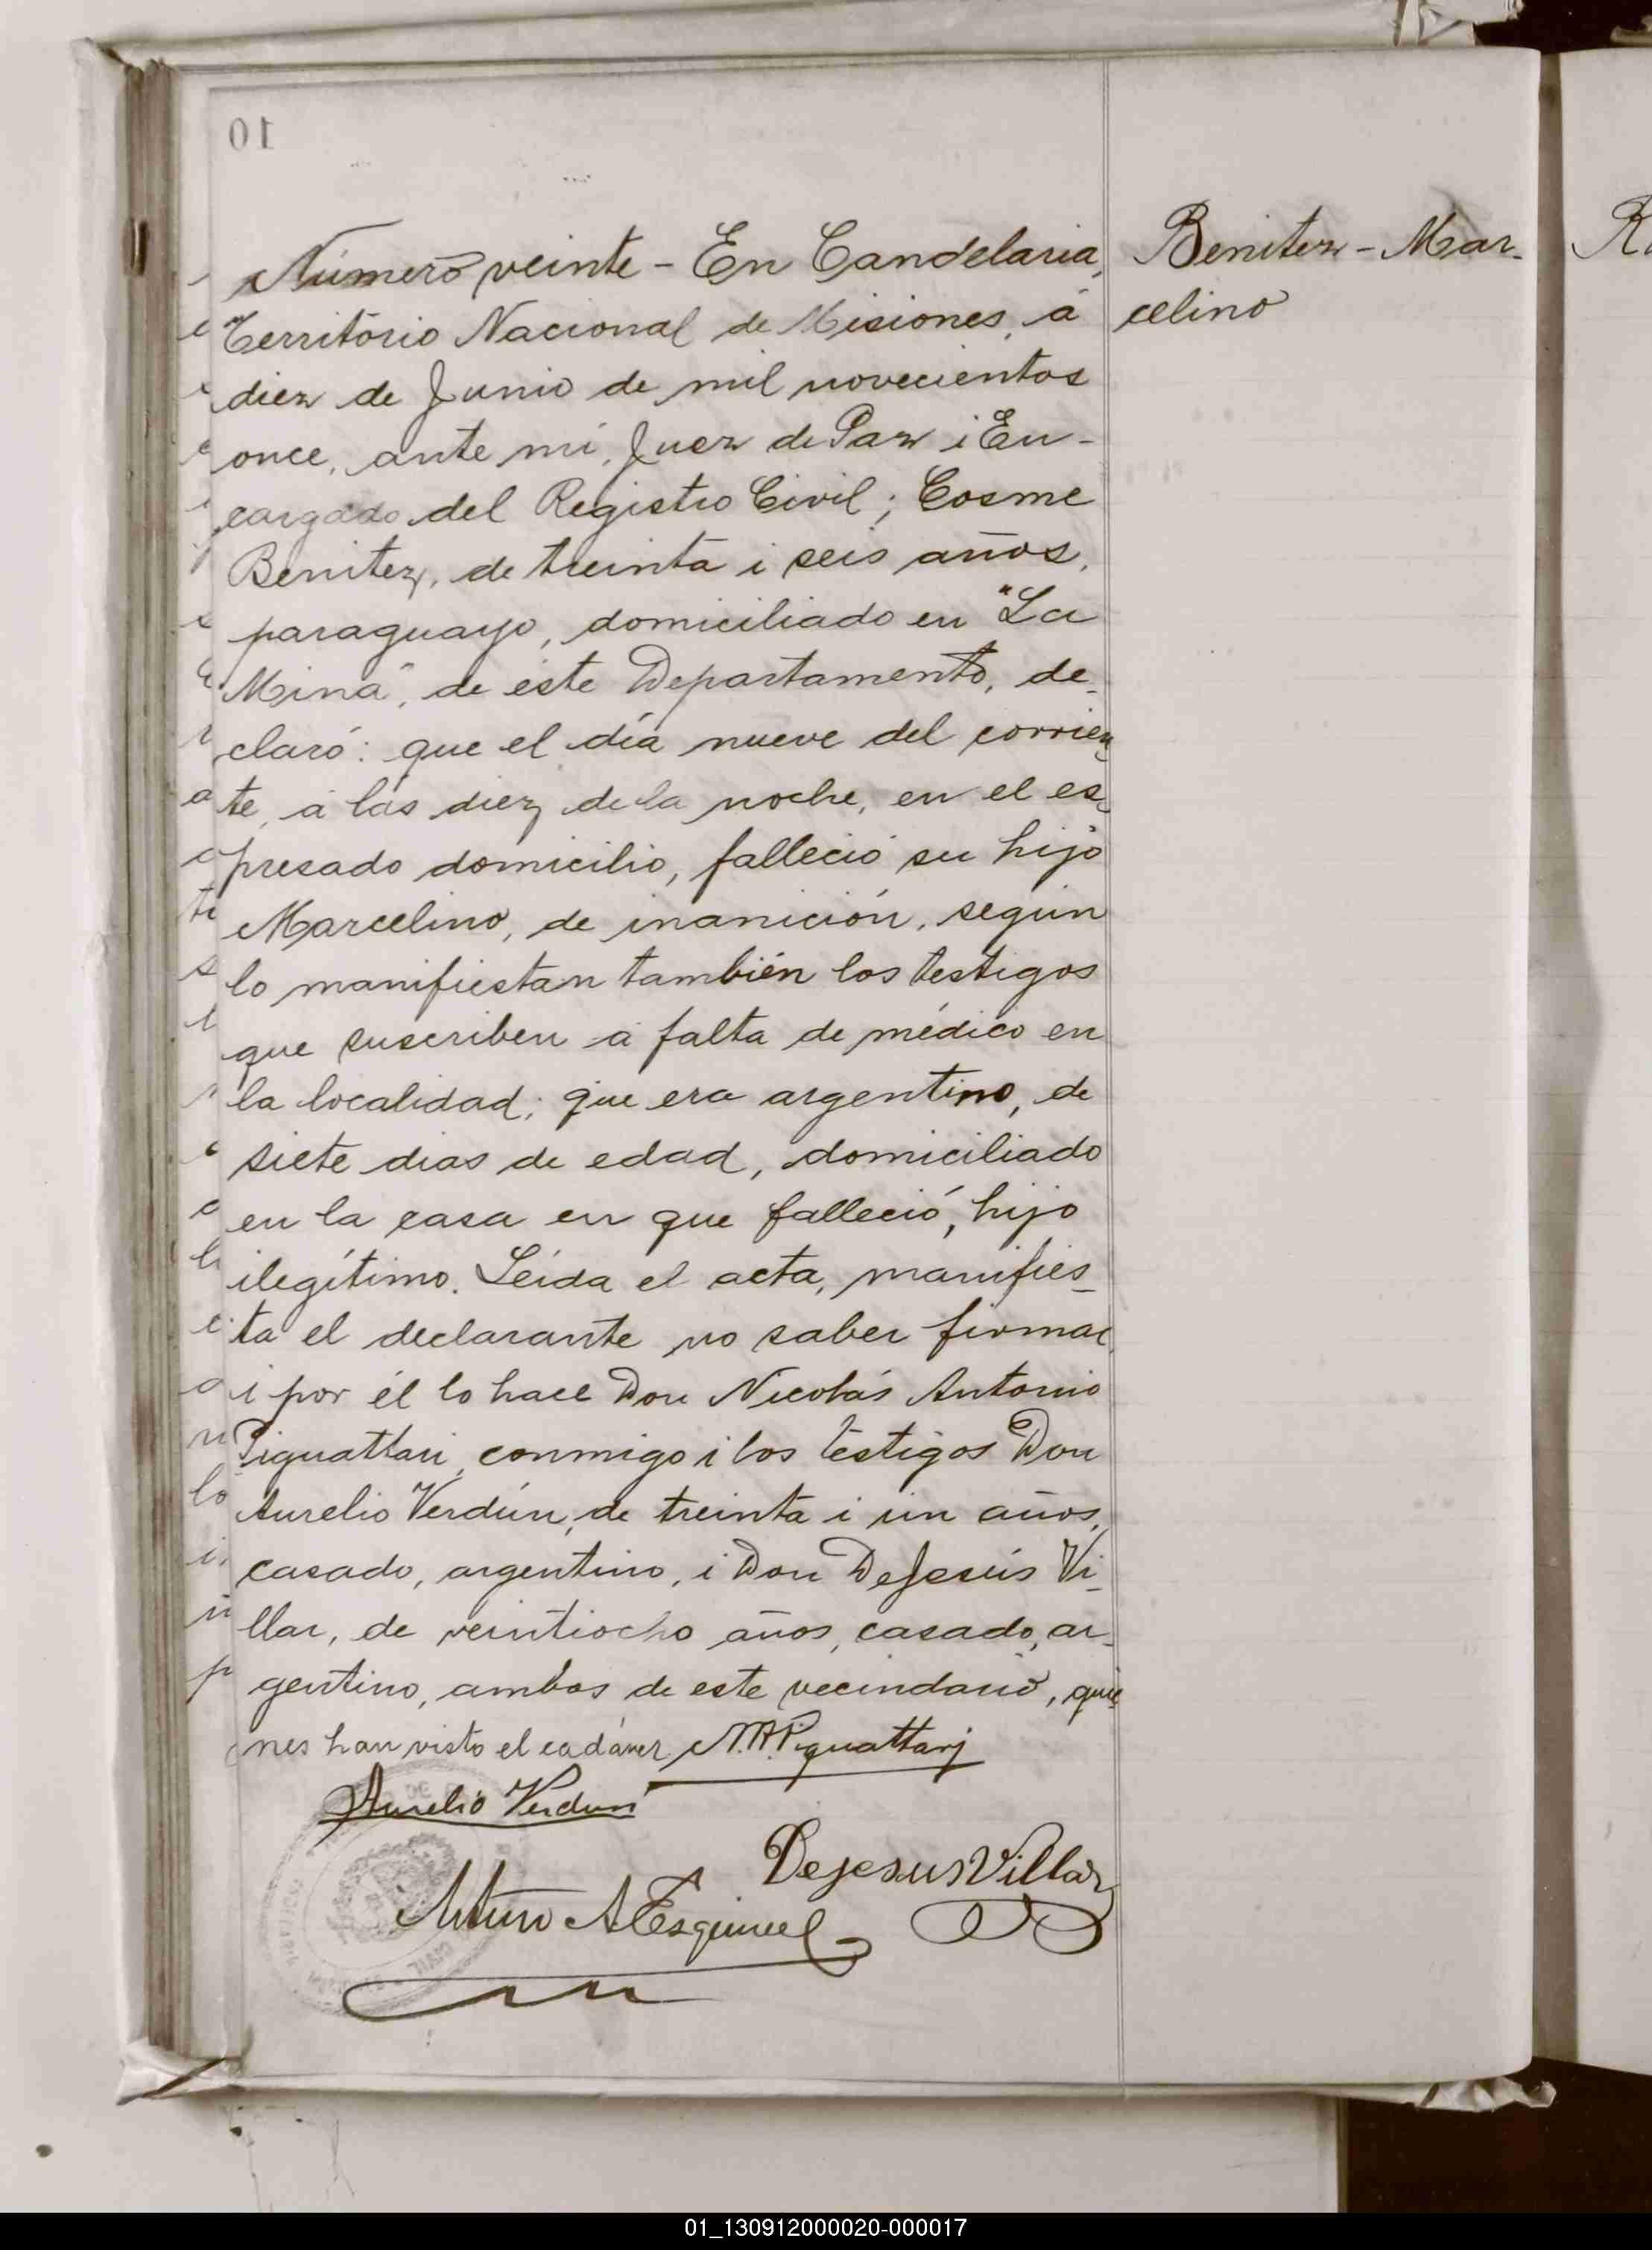 Número veinte - En Candelaria,
Territorio Nacional de Misiones, á
diez de Junio de mil novecientos
once, ante mí, Juez de Paz i En-
cargado del Registro Civil; Cosme
Benitez, de treinta i seis años,
paraguayo, domiciliado en "La
Mina", de este Departamento, de-
claró: que el día nueve del corrien-
te, á las diez de la noche, en el es-
presado domicilio, falleció su hijo
Marcelino, de inanición, según
lo manifiestan también los testigos
que suscriben á falta de médico en
la localidad; que era argentino, de
siete dias de edad, domiciliado
en la casa en que falleció, hijo
ilegítimo. Leída el acta, manifies-
ta el declarante no saber firmar,
i por él lo hace Don Nicolás Antonio
Piguattari, conmigo i los testigos Don
Aurelio Verdún, de treinta i un años,
casado, argentino, i Don DeJesús Vi-
llar, de veintiocho años, casado, ar-
gentino, ambos de este vecindario, quie-
nes han visto el cadáver N.A.Piguattarj
Aurelio Verdun
DejesusVillar
Arturo A Esquivel
Benitez - Mar-
celino
10
01_130912000020-000017